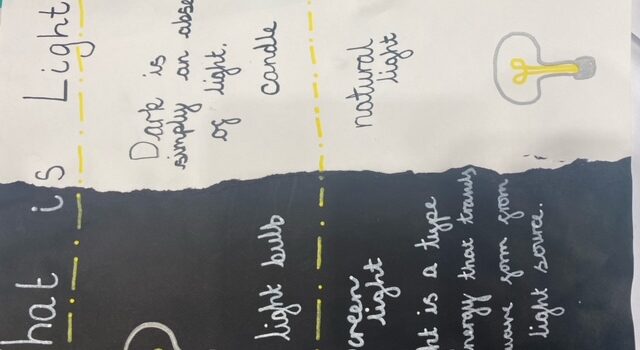 hat is Light
Dark is
simply an abse
of light.
light bulb
candle
creen
light
natural
light
ht is a type
nergy that
wave from
light source.